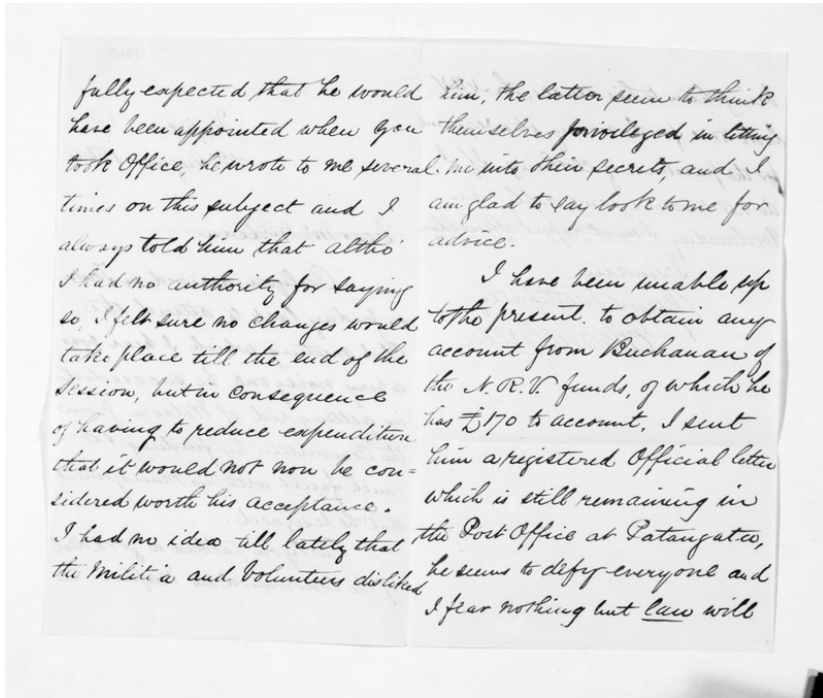 fully expected that he would
have been appointed when you
took Office, he wrote to me several
times on this subject and I
always told him that altho'
I had no authority for saying
so, I felt sure no changes would
take place till the end of the
Session, but in consequence
of having to reduce expenditure
that it would not now be con=
sidered worth his acceptance.
I had no idea till lately that
the Militia and Volunteers disliked
him, the latter seem to think
themselves privileged in letting
me into their secrets, and I
am glad to say look to me for
advice.
I have been unable up
to the present. to obtain any
account from Buchanan of
the N.R.V. funds, of which he
has £170 to account. I sent
him a registered Official letter
which is still remaining in
the Post Office at Patangata,
he seems to defy everyone and
I fear nothing but law will